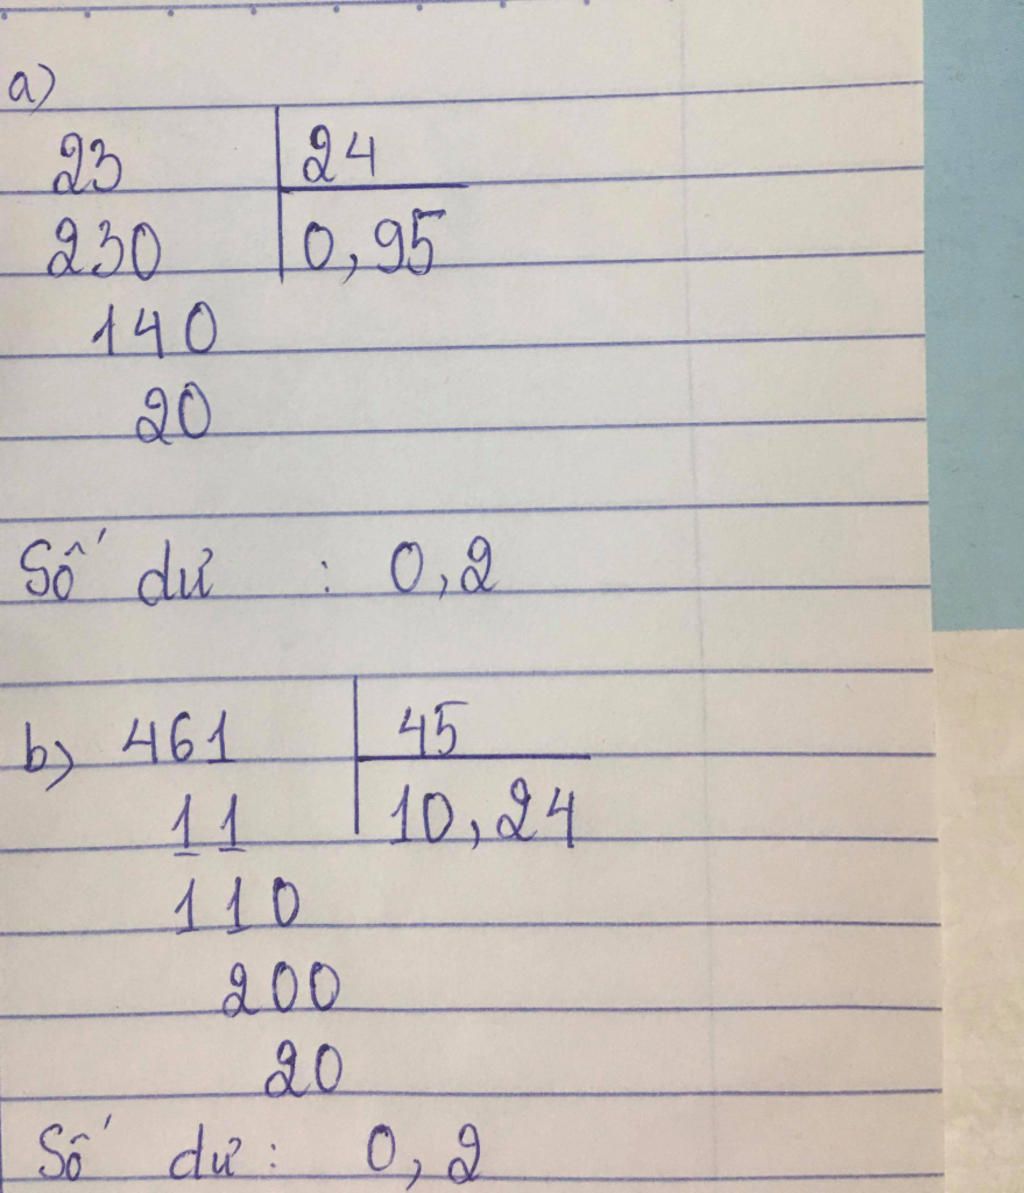 a)
23 24
230 0,95
140
20
Số dư : 0,2
b) 461 45
11 10,24
110
200
20
Số dư : 0,2